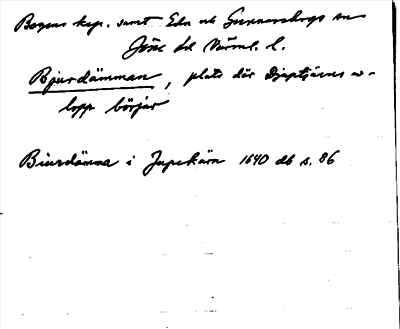 Bogens kap. samt Eda och Gunnarskogs sn
Jösse hd Värml. l.
Bjurdämman, plats där Djuptjärns av-
lopp börjar
Biurdämma i Jupekärn 1640 db s. 86